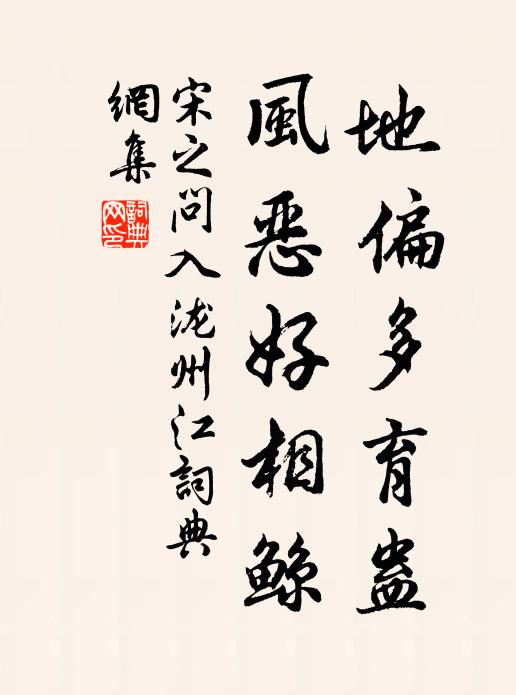 地偏多育蠱
風恶好相鯨
宋之问入泷州江詞典
網集
詞典
网印